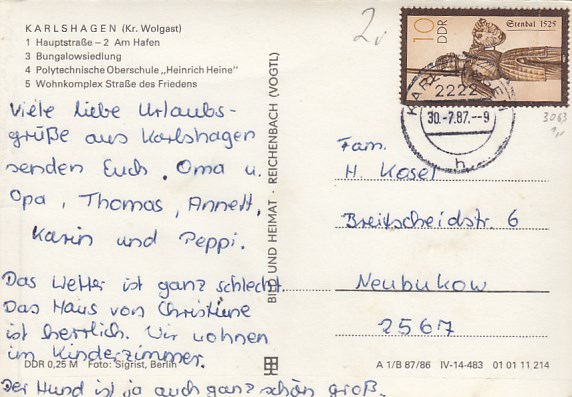 KARLSHAGEN (Kr. Wolgast)
1 Hauptstraße – 2 Am Hafen
3 Bungalowsiedlung
4 Polytechnische Oberschule „Heinrich Heine"
5 Wohnkomplex Straße des Friedens
Viele liebe Urlaubs-
grüße aus Karlshagen
senden Euch, Oma u.
Opa, Thomas, Annett,
Karin und Peppi.
Das Wetter ist ganz schlecht.
Das Haus von Christine
ist herrlich. Wir wohnen
im Kinderzimmer.
Der Hund ist ja auch ganz schön groß.
DDR 0,25 M Foto: Sigrist, Berlin
BILD UND HEIMAT · REICHENBACH (VOGTL)
2,
10
DDR
Stendal 1525
2222
30.-7.87.--9
h
3063
Fam.
H. Kosel
Breitscheidstr. 6
Neubukow
2567
A 1/B 87/86 IV-14-483 01 01 11 214